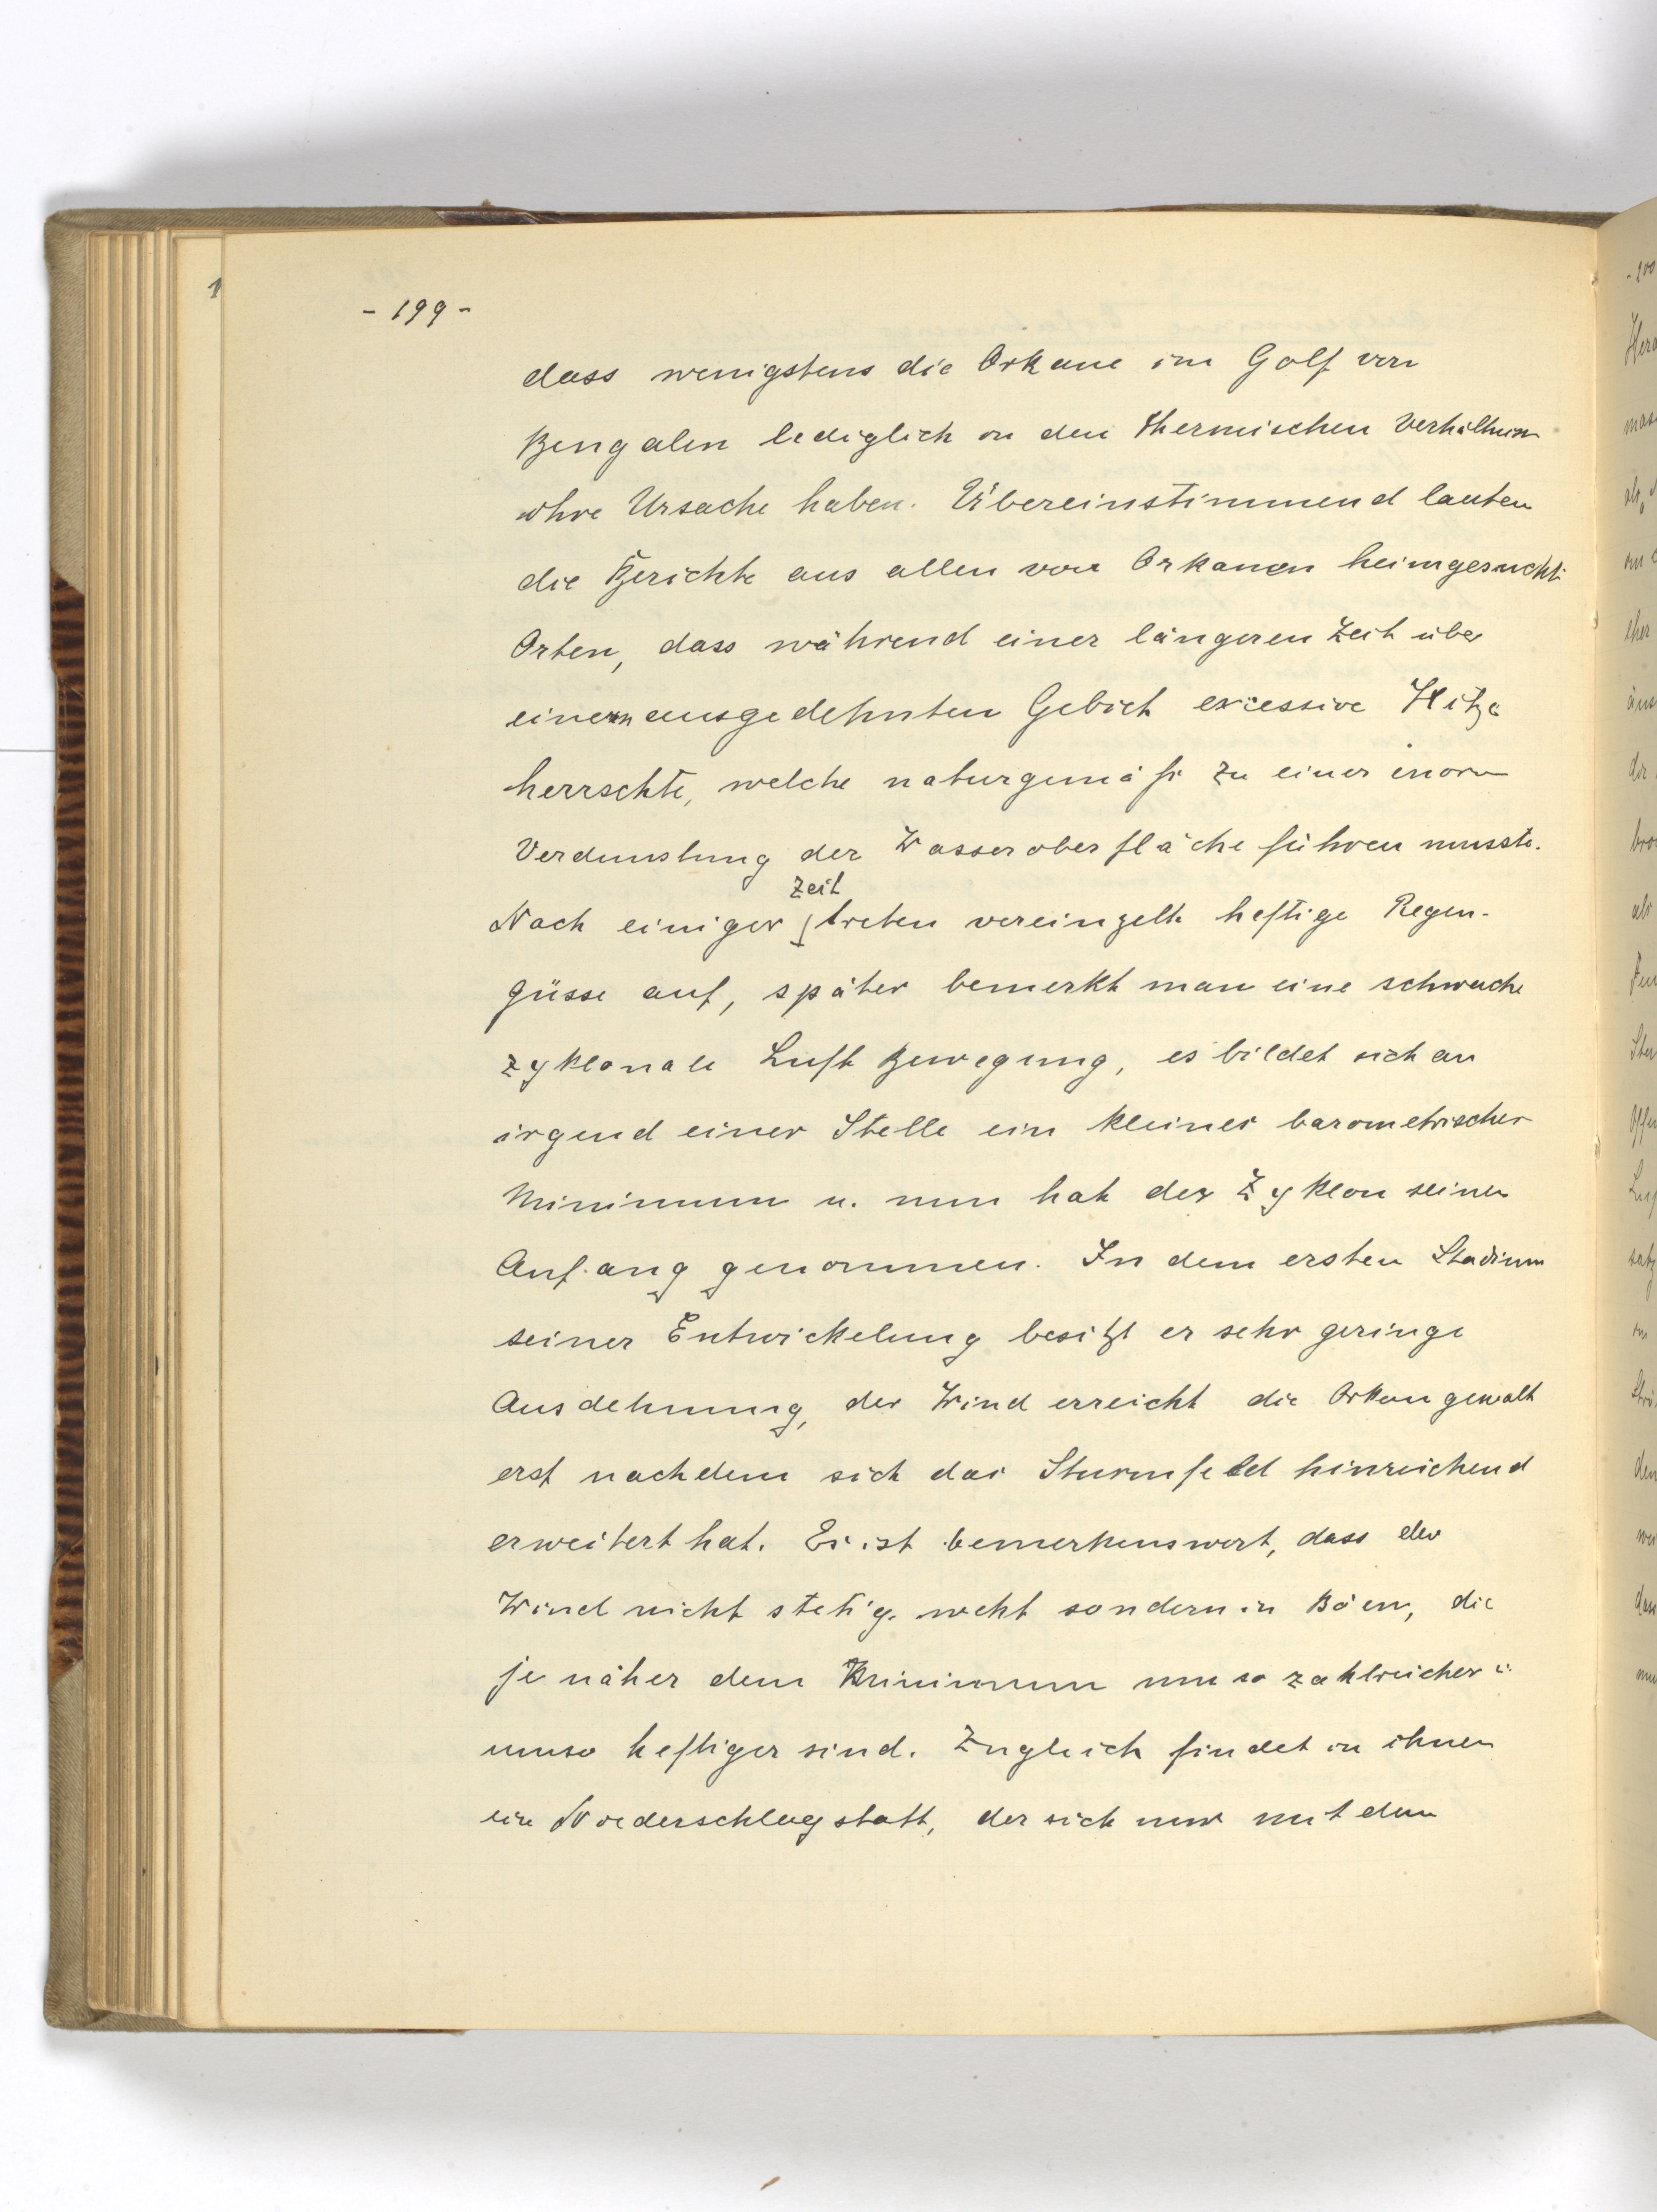 - 199 -
dass wenigstens die Orkane im Golf von
Bengalen lediglich in den thermischen Verhältniss
ihre Ursache haben. Übereinstimmend lauten
die Berichte aus allen von Orkanen heimgesucht
Orten, dass während einer längeren Zeit über
einem ausgedehnten Gebiet excessive Hitze
herrschte, welche naturgemäß zu einer enorm
Verdunstung der Wasseroberfläche führen musste.
Zeit
Nach einiger treten vereinzelte heftige Regen-
güsse auf, später bemerkt man eine schwache
zyklonale Luft Bewegung, es bildet sich an
irgend einer Stelle ein kleines barometrisches
Minimum u. nun hat der Zyklon seinen
Anfang genommen. In dem ersten Stadium
seiner Entwickelung besitzt er sehr geringe
Ausdehnung, der Wind erreicht die Orkangewalt
erst nachdem sich das Sturmfeld hinreichend
erweitert hat. Es ist bemerkenswert, dass der
Wind nicht stetig weht sondern in Böen, die
je näher dem Minimum um so zahlreicher u.
umso heftiger sind. Zugleich findet in ihnen
ein Niederschlag statt, der sich nur mit dem